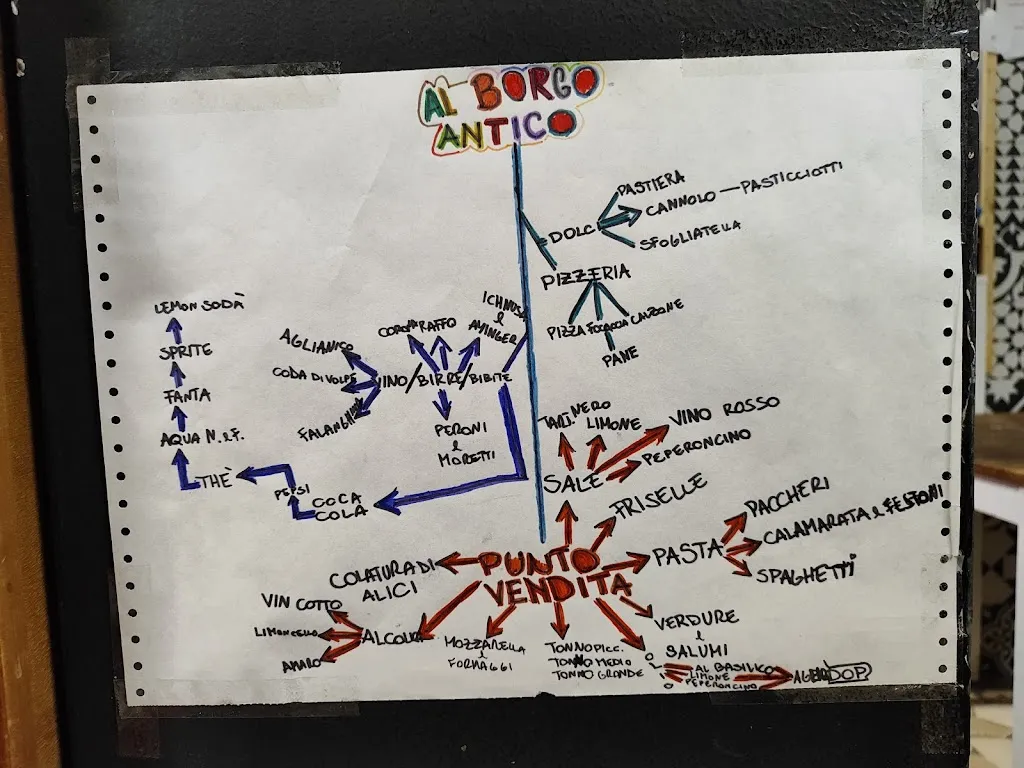 AL BORGO
ANTICO
PASTIERA
CANNOLO — PASTICCIOTTI
DOLCI
SFOGLIATELLA
PIZZERIA
PIZZA FOCACCIA CALZONE
PANE
ICHNUSA
e
AYINGER
CORONA RAFFO
VINO/BIRRE/BIBITE
PERONI
e
MORETTI
AGLIANICO
CODA DI VOLPE
FALANGHINA
LEMON SODÀ
SPRITE
FANTA
AQUA N. e F.
THÈ
PEPSI
COCA
COLA
TART. NERO
LIMONE
VINO ROSSO
PEPERONCINO
SALE
FRISELLE
PUNTO
VENDITA
PASTA
PACCHERI
CALAMARATA e FESTONI
SPAGHETTI
COLATURA DI
ALICI
VIN COTTO
LIMONCELLO
AMARO
ALCOLICI
MOZZARELLA
e
FORMAGGI
TONNO PICC.
TONNO MEDIO
TONNO GRANDE
VERDURE
e
SALUMI
OLIO
AL BASILICO
LIMONE
PEPERONCINO
DOP